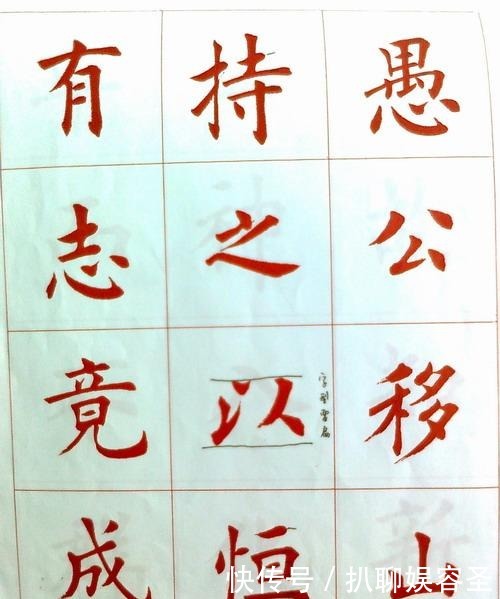 愚公移山
持之以恒
字型扁
有志竟成
快传号 / 扒聊娱容圣